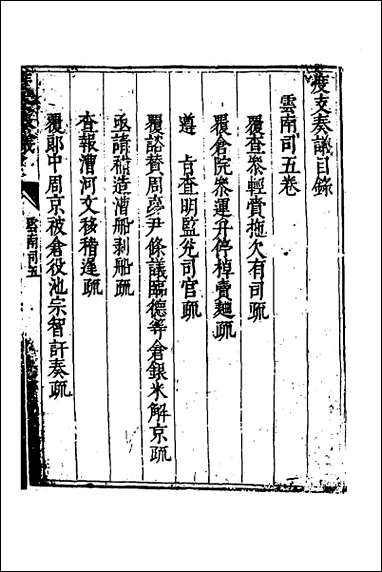 度支奏議目錄
雲南司五卷
覆查叅輕賫拖欠有司疏
覆倉院叅運弁停棹賣麵疏
遵 旨查明監兌司官疏
覆談贊周彥尹條議臨德等倉銀米解京疏
亟請補造漕船剥船疏
查報漕河文移稽遲疏
覆郎中周京被倉役池宗智訐奏疏
雲南司五